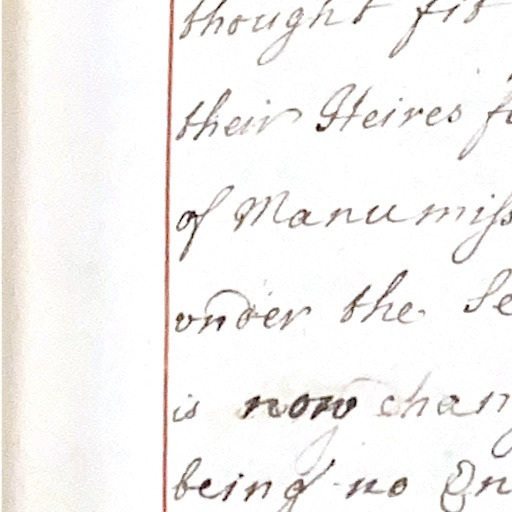 thought fit
their Heires fo
of Manumiſs
vnder the Se
is now chang
being no En